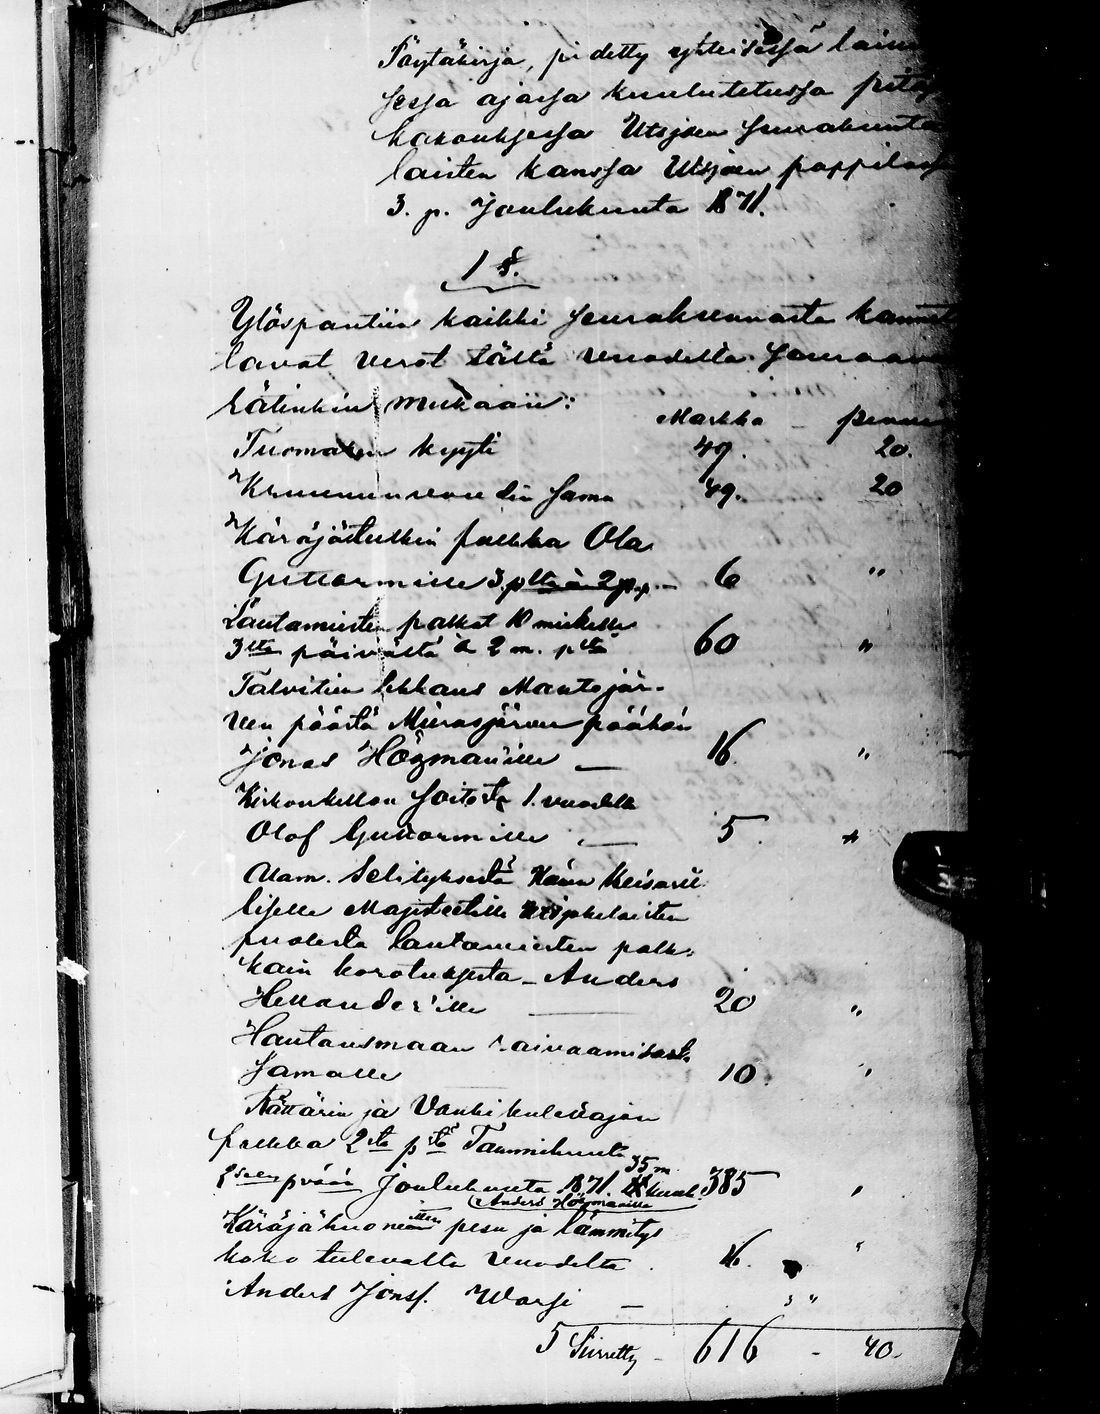 Pöytäkirja, pidetty yhteisessä
sessa ajassa kuulutetussa
kokouksessa Utsjoen Seurakunta
laisten kanssa Utsjoen
3. p. Joulukuuta 1871.
1 §.
Ylöspantiin kaikki Seurakunnasta
tavat verot tältä vuodelta
mukaan:
Markka - penni
Tuomarin kyyti 49. 20.
Kruununvoudin sama 49. 20
Käräjätulkin palkka Ola
Guttormille 3 p 6 "
Lautamiesten palkat 10 miehelle
3lta päivältä à 2 m. 60 "
Talvitien Mantojär-
ven päästä Mierasjärven päähän
Jonas Högman'ille — 16. "
Kirkonkellon soitosta 1. vuodelta
Olof Guttormille — 5. "
Alam. Selityksestä Hänen Keisaril
liselle Majesteetille
puolesta lautamiesten palk-
kain korotuksesta - Anders
Hellander'ille — 20 "
Hautausmaan raivaamisesta
Samalle 10. "
ja Vankikulettajan
palkka 2sta p Tammikuuta
Joulukuuta 1871 35 m 385 "
Anders Högmanille
pesu ja lämmitys
koko tulevalta vuodelta 16. "
Anders Jons. —
Siirretty - 616 - 40.